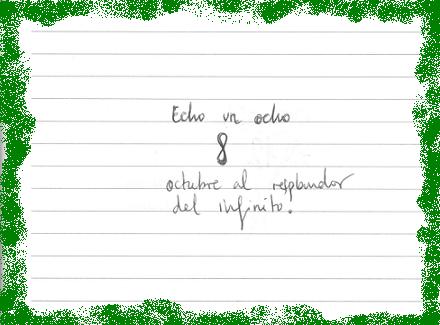 Echo un ocho
8
octubre al resplandor
del infinito.